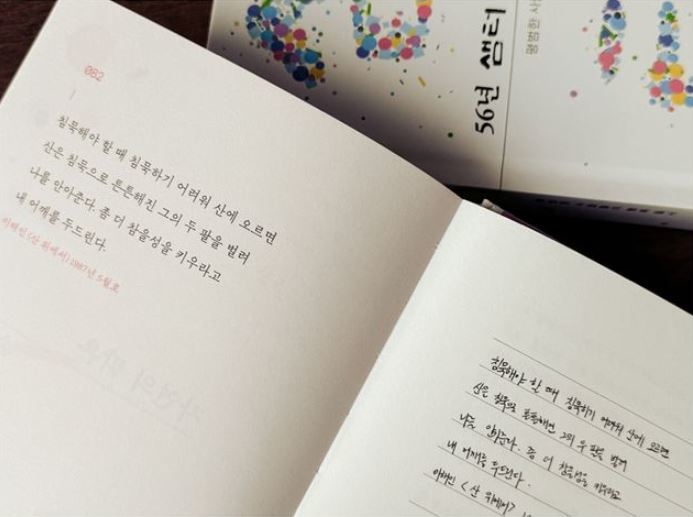 082
침묵해야 할 때 침묵하기 어려워 산에 오르면
산은 침묵으로 튼튼해진 그의 두 팔을 벌려
나를 안아준다. 좀 더 참을성을 키우라고
내 어깨를 두드린다.
이해인 〈산 위에서〉 1987년 5월호
56년 샘터
평범한 사
침묵해야 할 때 침묵하기 어려워 산에 오르면
산은 침묵으로 튼튼해진 그의 두 팔을 벌려
나를 안아준다. 좀 더 참을성을 키우라고
내 어깨를 두드린다.
이해인 〈산 위에서〉